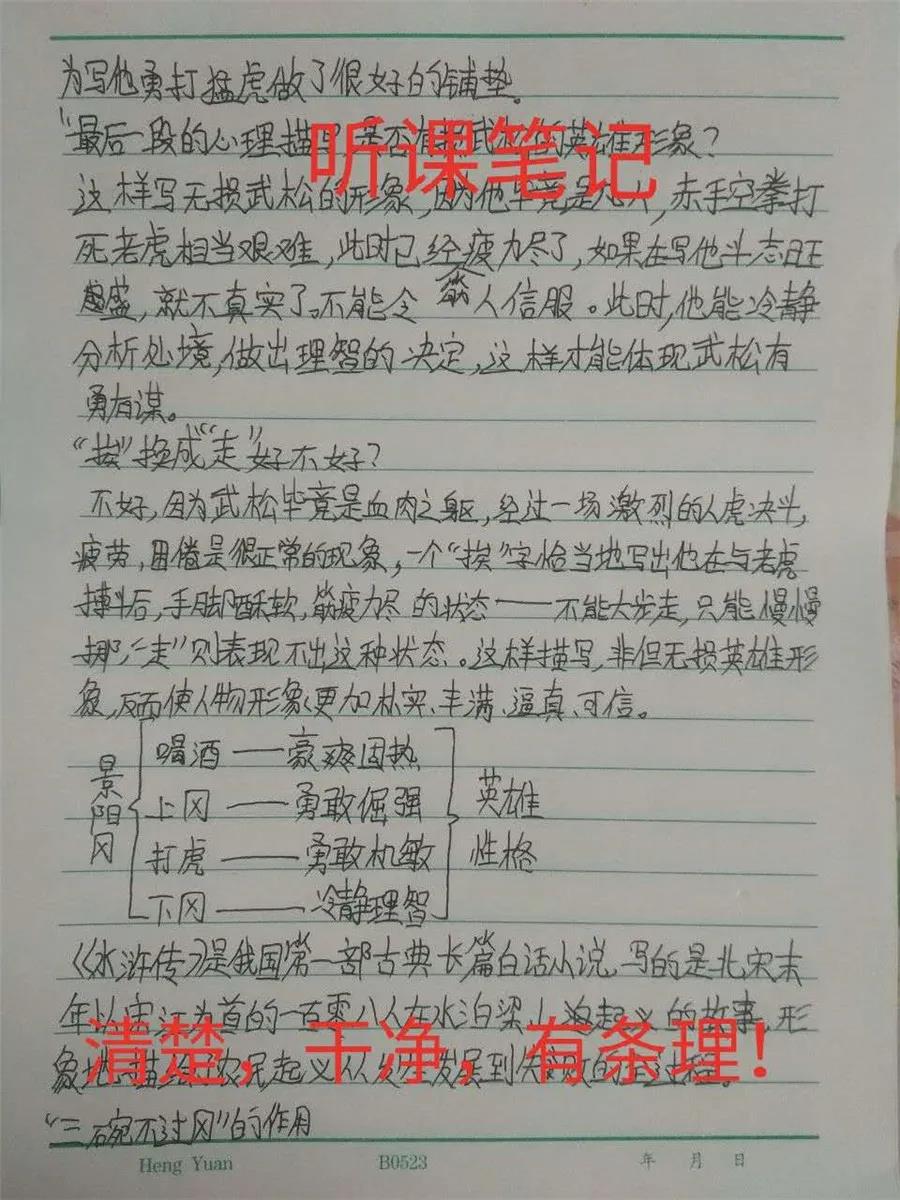 为写他勇打猛虎做了很好的铺垫。
"最后一段的心理描写,是否有损武松的英雄形象?
听课笔记
这样写无损武松的形象,因为他毕竟是凡人,赤手空拳打
死老虎相当艰难,此时已经疲力尽了,如果在写他斗志旺
盛,就不真实了。不能令人信服。此时,他能冷静
分析处境,做出理智的决定,这样才能体现武松有
勇有谋。
"挨"换成"走"好不好?
不好,因为武松毕竟是血肉之躯,经过一场激烈的人虎决斗,
疲劳,困倦是很正常的现象,一个"挨"字恰当地写出他在与老虎
搏斗后,手脚酥软,筋疲力尽的状态——不能大步走,只能慢慢
挪,"走"则表现不出这种状态。这样描写,非但无损英雄形
象,反而使人物形象更加朴实、丰满、逼真、可信。
景阳冈
喝酒——豪爽因热
上冈——勇敢倔强
打虎——勇敢机敏
下冈——冷静理智
英雄
性格
《水浒传》是我国第一部古典长篇白话小说 写的是北宋末
年以宋江为首的一百零八人在水泊梁山 起义的故事,形
清楚,干净,有条理!
象地描绘 农民起义从发生发展到失败的全过程。
"三碗不过冈"的作用
Heng Yuan
B0523
年 月 日